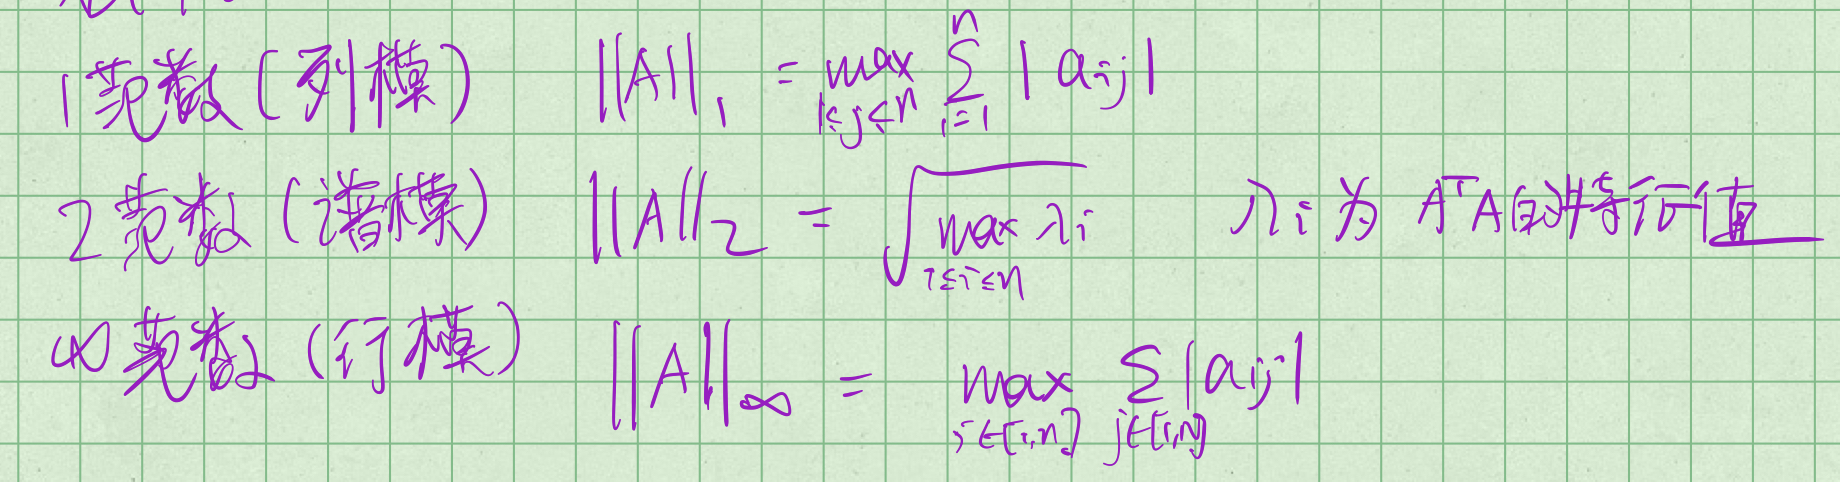 1范数(列模) ||A||₁ = max 1≤j≤n n Σ i=1 |aij|
2范数(谱模) ||A||₂ = √(max 1≤i≤n λi) λi为 AᵀA的特征值
∞范数(行模) ||A||∞ = max i∈[1,n] Σ j∈[1,n] |aij|